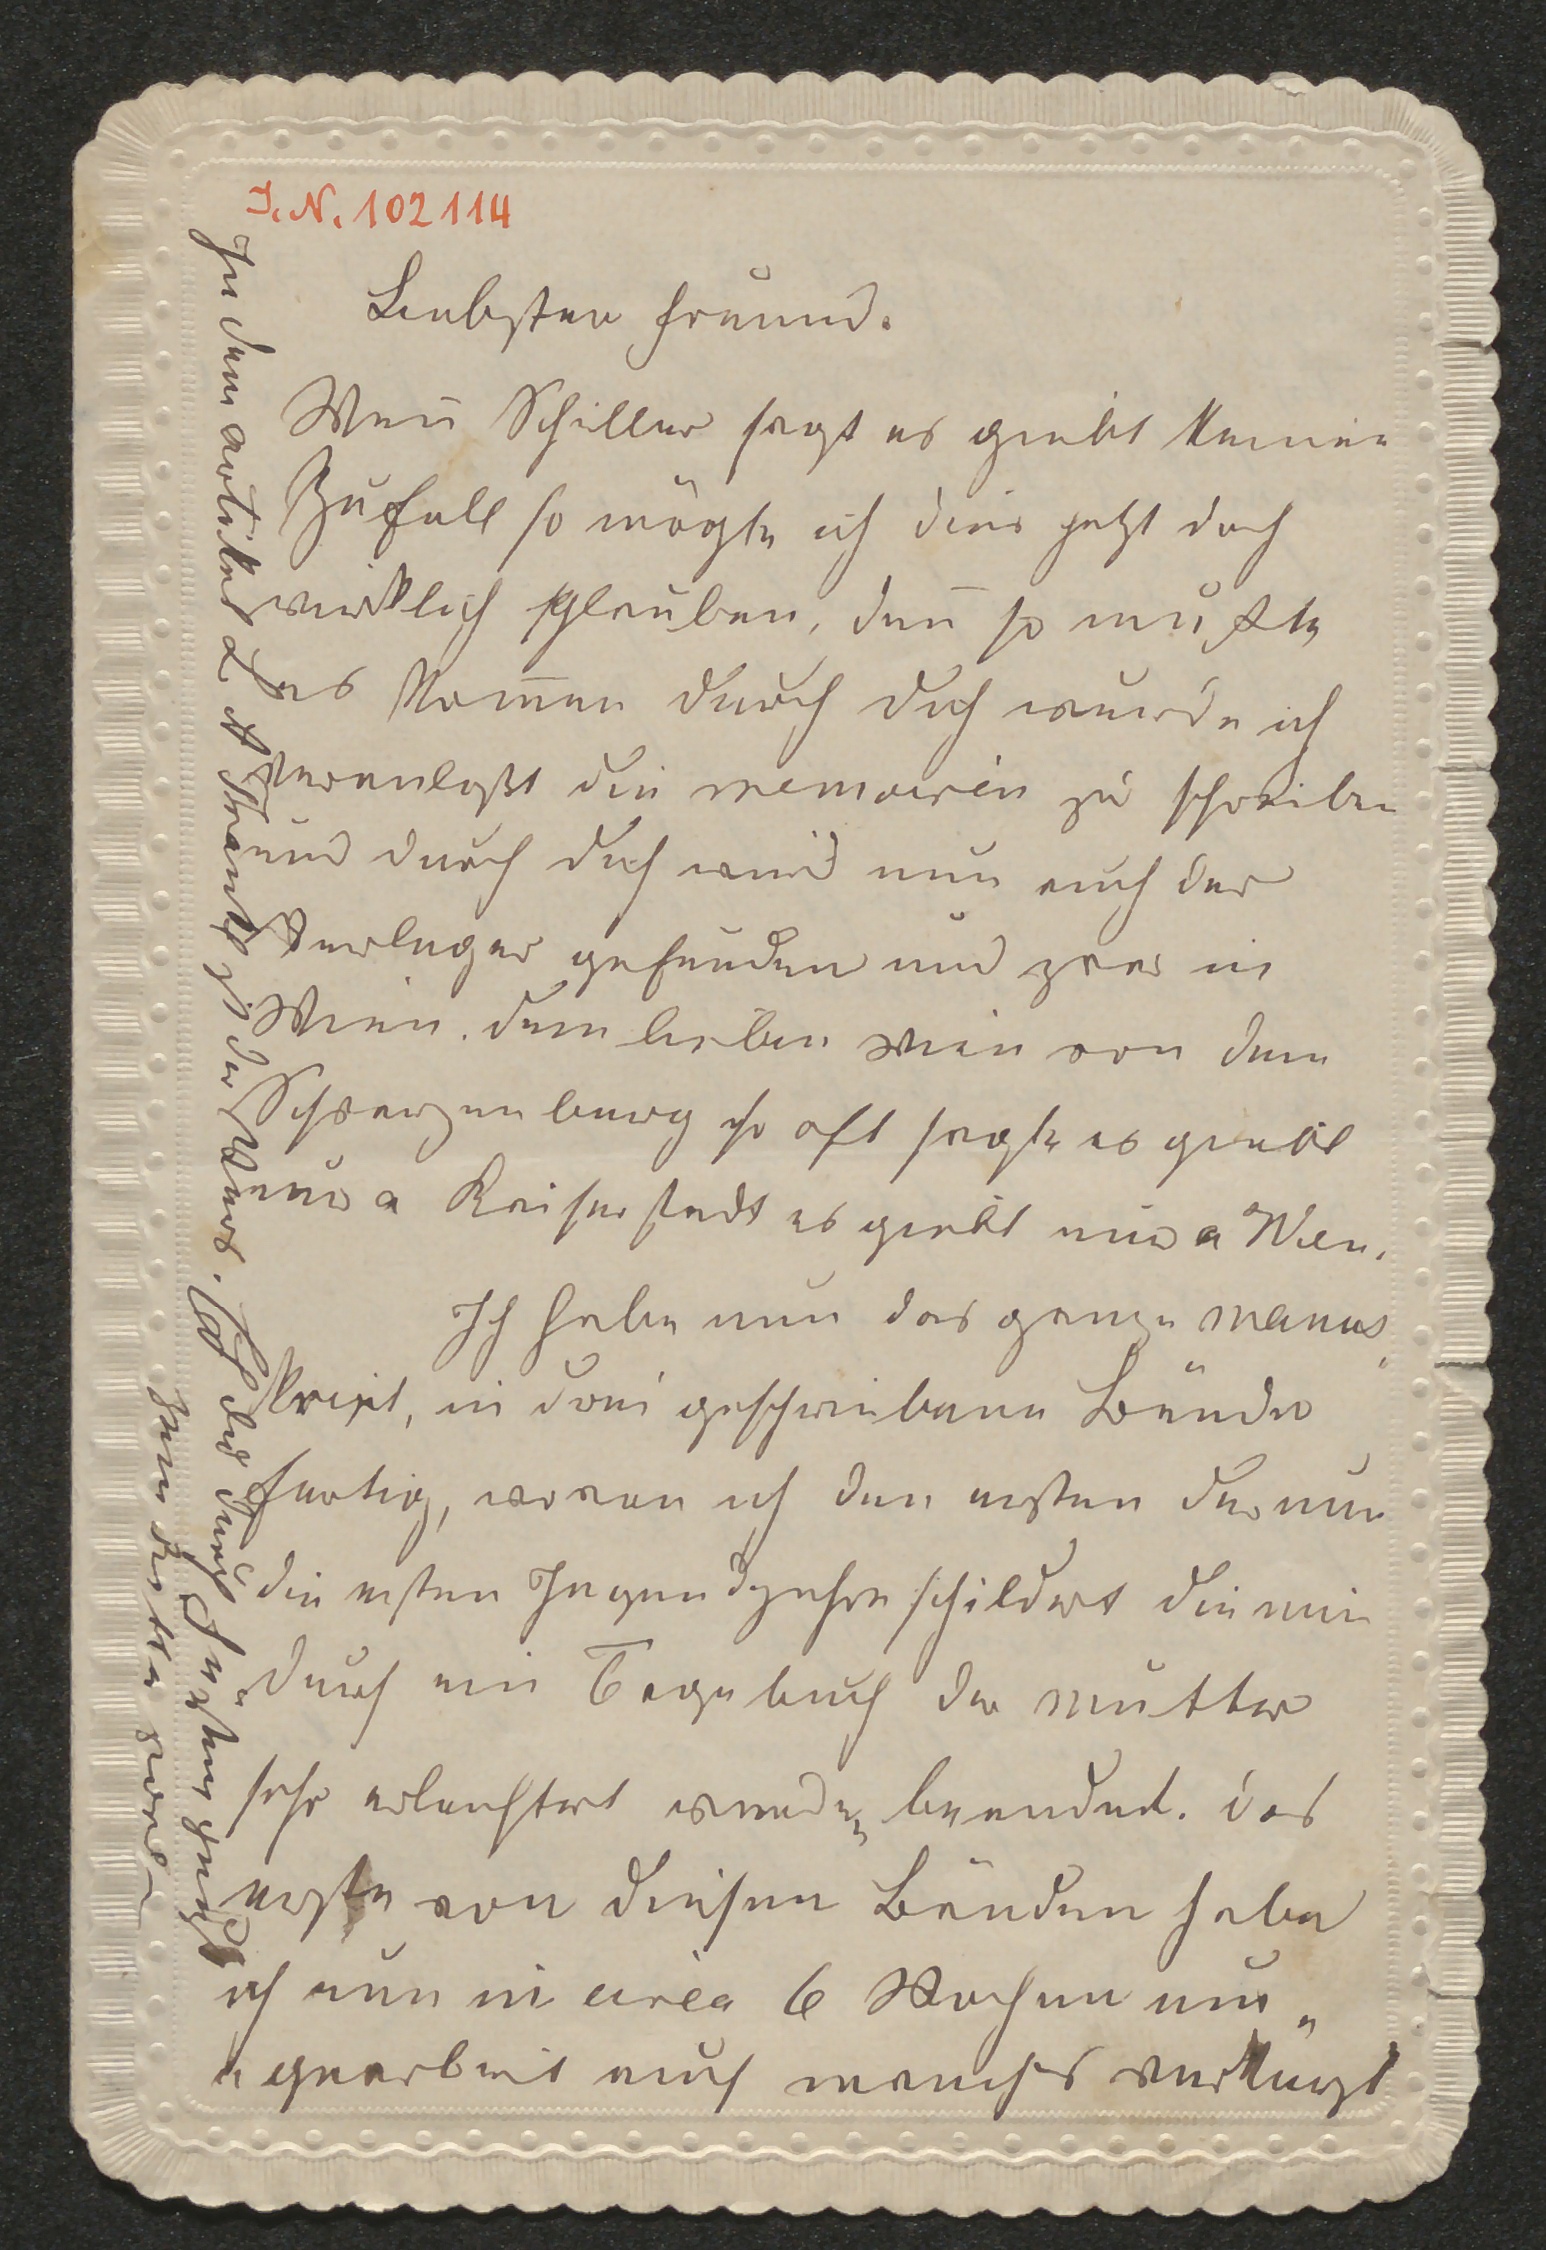 I. N. 102114
Liebster Freund.
Weñ Schiller sagt es giebt keinen
Zufall so mögte ich dies jetzt doch
wirklich glauben, deñ so mußte
es kom̄en durch dich wurde ich
veranlaßt die memoiren zu schreiben
und durch dich wird nun auch der
Verleger gefunden und zwar in
Wien. dem lieben Wien von dem
Schwarzenberg so oft sagte es giebt
nur a Kaiserstadt es giebt nur a Wien.
Ich habe nun das ganze manus
kript, in drei geschriebene Bände
fertig, wovon ich den ersten der nur
die ersten Jugendjahre schildert die mir
durch ein Tagebuch der Mutter
sehr erleichtert wurden, beendet. das
erste von diesen Bänden habe
ich nun in circa 6 Wochen um"
"gearbeit auch manches verkürzt
In dem artikel v. A Strant zu der